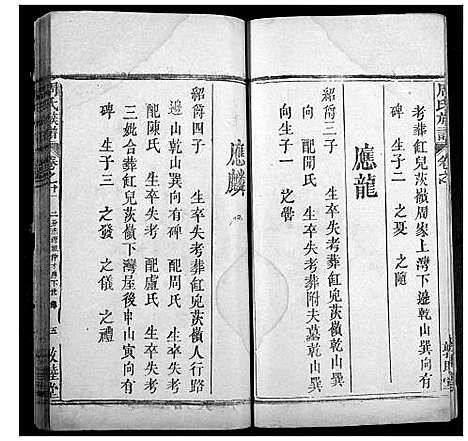 周氏族譜
卷之
考葬缸兒茨嶺周家上灣下邊乾山巽向有
碑 生子二 之夏 之隨
應龍
紹爵三子 生卒失考葬缸兒茨嶺乾山巽
向 配閔氏 生卒失考葬附夫墓乾山巽
向生子一 之
應麟
紹爵四子 生卒失考葬缸兒茨嶺人行路
邊山乾山巽向有碑 配周氏 生卒失考
配陳氏 生卒失考 配盧氏 生卒失考
三妣合葬缸兒茨嶺下灣屋後申山寅向有
碑 生子三 之發 之儀 之禮
周氏族譜
卷之
五
敦睦堂